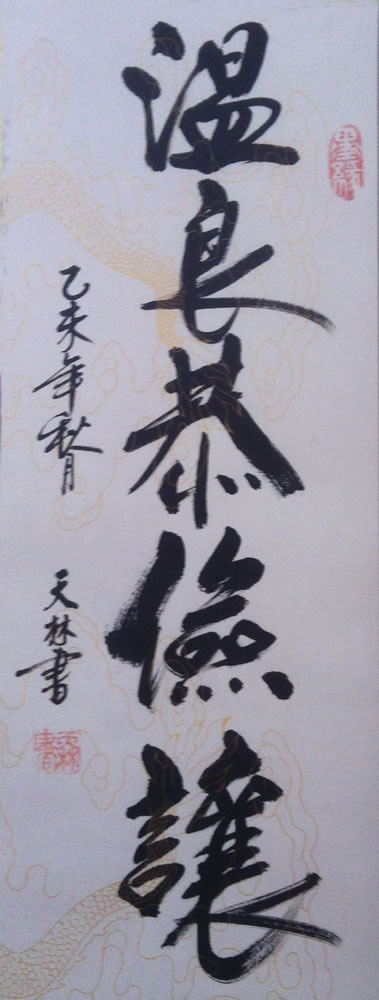 溫良恭儉讓
乙未年秋月
天林書
墨緣